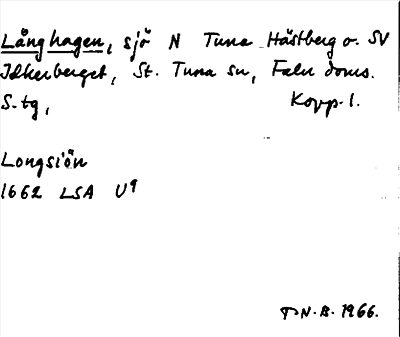 Långhagen, sjö N Tuna Hästberg o. SV
Idkerberget, St. Tuna sn, Falu doms.
S-tg, Kopp. l.
Longsiön
1662 LSA U9
N.B. 1966.